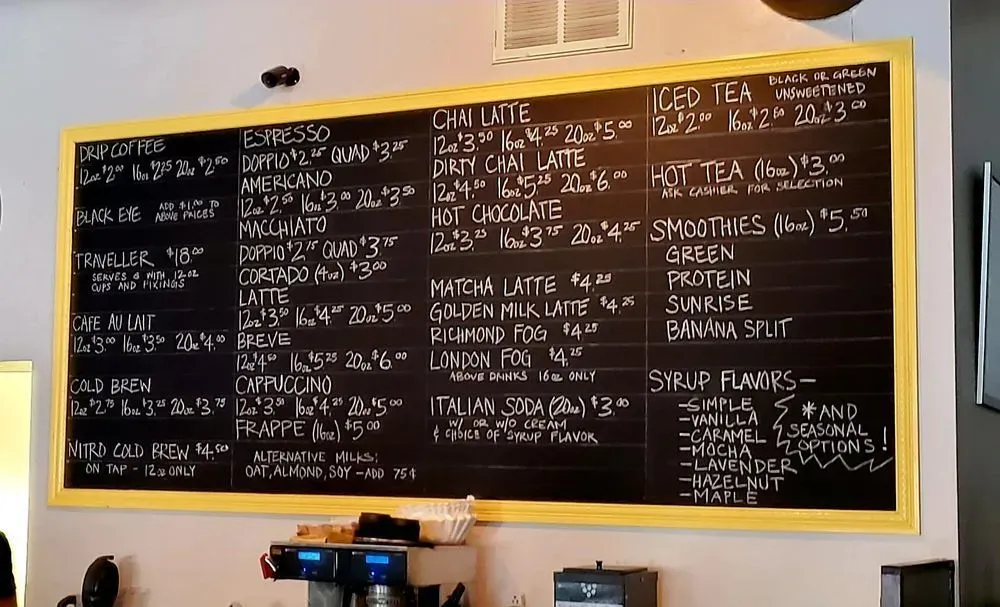 DRIP COFFEE
12oz $2.00 16oz $2.25 20oz $2.50
BLACK EYE ADD $1.00 TO
ABOVE PRICES
TRAVELLER $18.00
SERVES 8 WITH 12oz
CUPS AND FIXINGS
CAFE AU LAIT
12oz $3.00 16oz $3.50 20oz $4.00
COLD BREW
12oz $2.75 16oz $3.25 20oz $3.75
NITRO COLD BREW $4.50
ON TAP - 12oz ONLY
ESPRESSO
DOPPIO $2.25 QUAD $3.25
AMERICANO
12oz $2.50 16oz $3.00 20oz $3.50
MACCHIATO
DOPPIO $2.75 QUAD $3.75
CORTADO (4oz) $3.00
LATTE
12oz $3.50 16oz $4.25 20oz $5.00
BREVE
12oz $4.50 16oz $5.25 20oz $6.00
CAPPUCCINO
12oz $3.50 16oz $4.25 20oz $5.00
FRAPPE (16oz) $5.00
ALTERNATIVE MILKS:
OAT, ALMOND, SOY - ADD 75¢
CHAI LATTE
12oz $3.50 16oz $4.25 20oz $5.00
DIRTY CHAI LATTE
12oz $4.50 16oz $5.25 20oz $6.00
HOT CHOCOLATE
12oz $3.25 16oz $3.75 20oz $4.25
MATCHA LATTE $4.25
GOLDEN MILK LATTE $4.25
RICHMOND FOG $4.25
LONDON FOG $4.25
ABOVE DRINKS 16oz ONLY
ITALIAN SODA (20oz) $3.00
W/ OR W/O CREAM
& CHOICE OF SYRUP FLAVOR
ICED TEA BLACK OR GREEN
UNSWEETENED
12oz $2.00 16oz $2.50 20oz $3.00
HOT TEA (16oz) $3.00
ASK CASHIER FOR SELECTION
SMOOTHIES (16oz) $5.50
GREEN
PROTEIN
SUNRISE
BANANA SPLIT
SYRUP FLAVORS—
-SIMPLE
-VANILLA
-CARAMEL
-MOCHA
-LAVENDER
-HAZELNUT
-MAPLE
*AND
SEASONAL
OPTIONS!